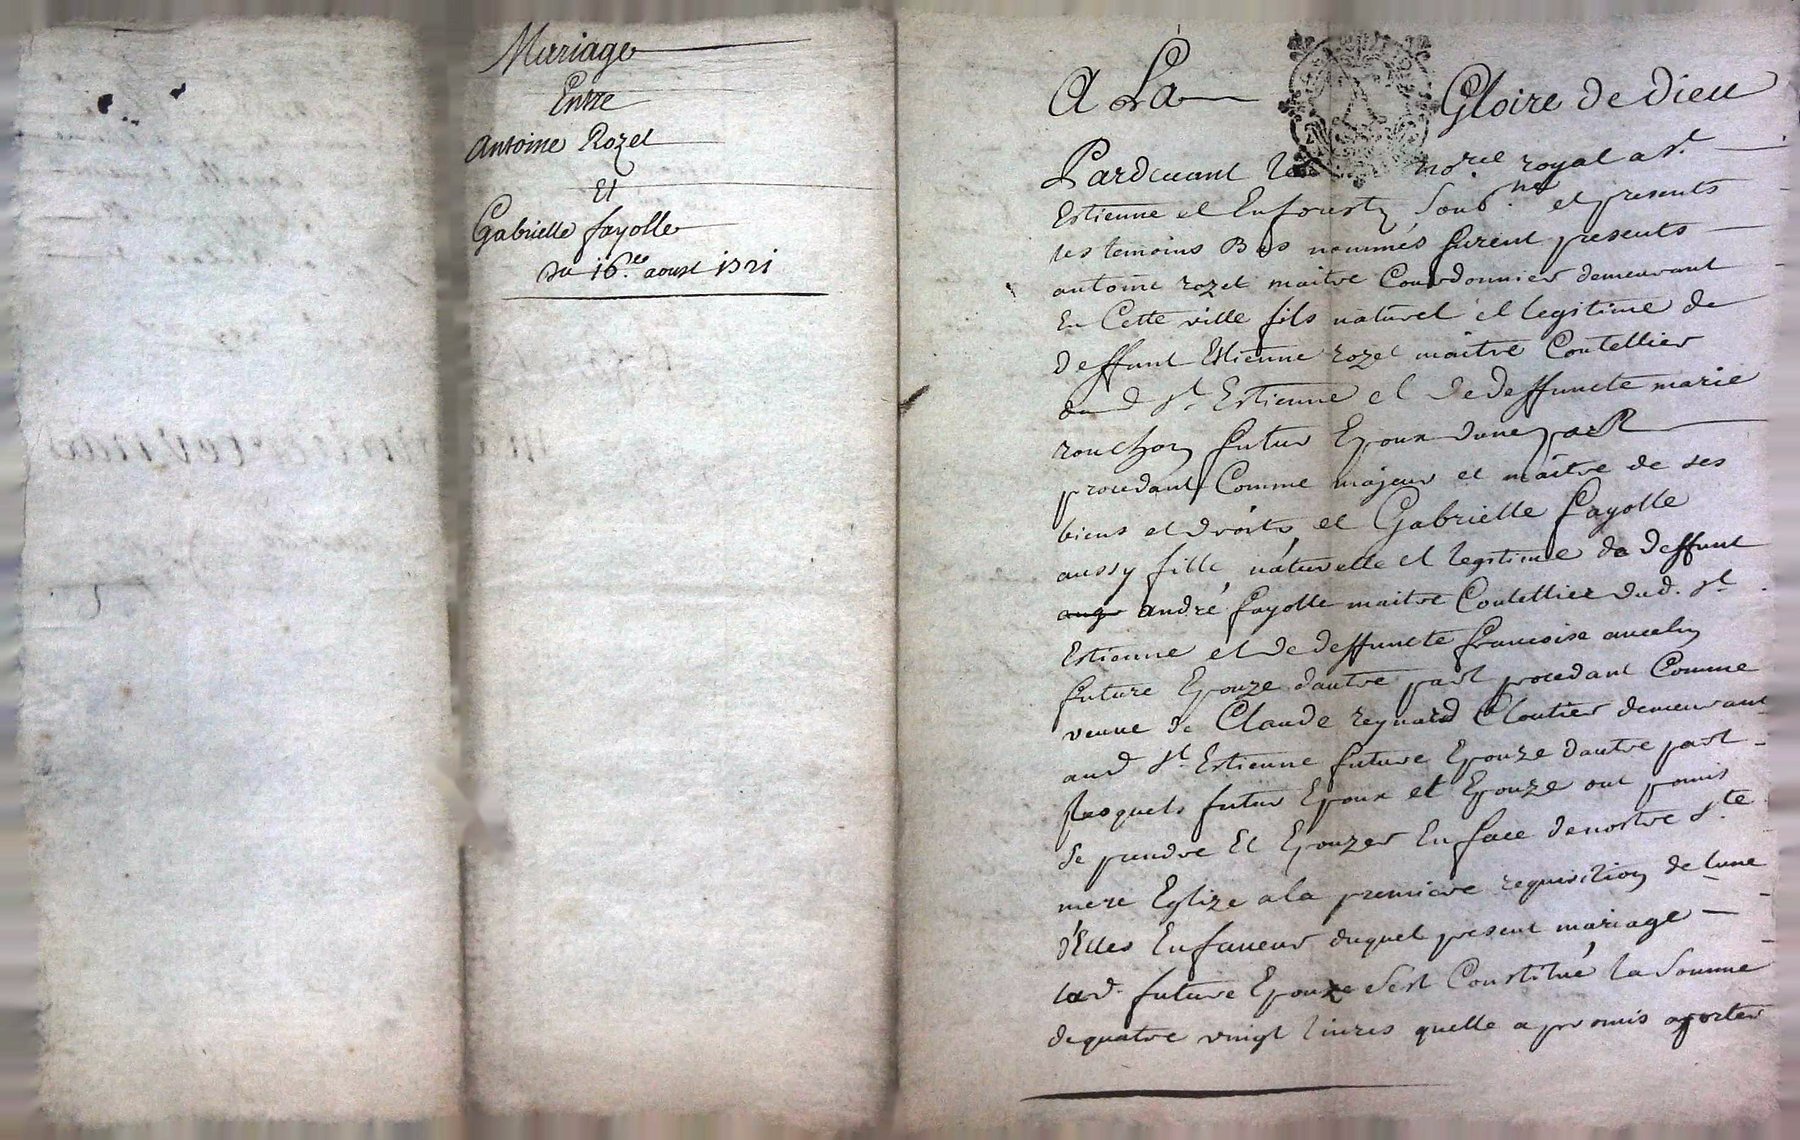 Mariage
Entre
Antoine Rozet
Et
Gabrielle fayolle
du 16.es aoust 1721
A La Gloire de Dieu
Pardeuant Le no.re royal a St.
Estienne et Enfourest Soub.ne et presents
les temoins Bas nommés furent presents
antoine rozet maitre Courdonnier demeurant
En Cette ville fils naturel et legitime de
deffunt Estienne rozet maitre Coutellier
dud St. Estienne et de deffuncte marie
rouchon futur Epoux dune part
procedant Comme majeur et maitre de ses
biens et droits, et Gabrielle fayolle
aussy fille naturelle et legitime de deffunt
andré fayolle maitre Coutellier dud. St
Estienne et de deffuncte francoise ancelin
future Epouze dautre part procedant Comme
veuue de Claude reynard Cloutier demeurant
aud St. Estienne future Epouze dautre part
lesquels futur Epoux et Epouze ont promis
se prendre Et Epouzer En face de nostre S.te
mere Eglize a la premiere requisition de lune
d'Elles En faueur duquel present mariage
lad. future Epouze s'est Constitué la Somme
de quatre vingt liures quelle a promis aporter